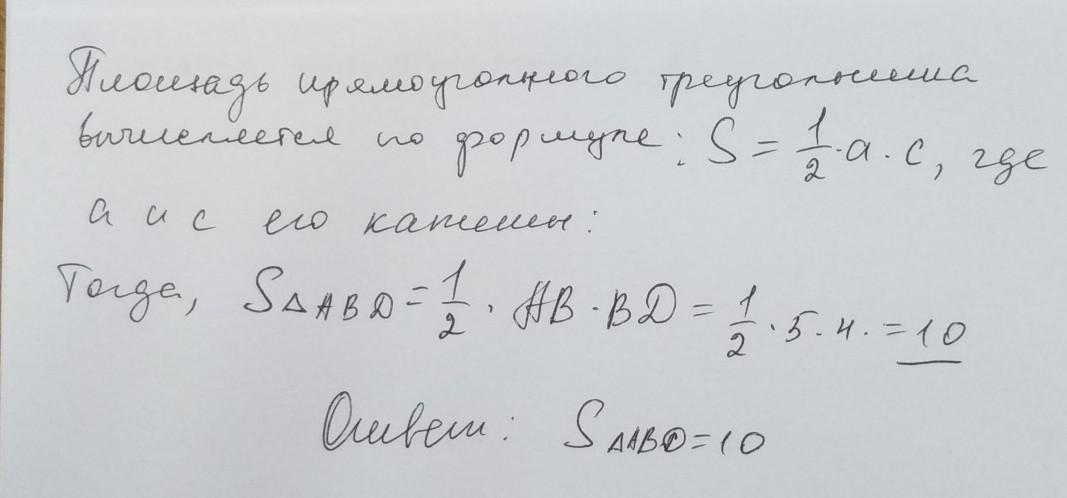 Площадь прямоугольного треугольника
вычисляется по формуле: S = 1/2 · a · c, где
a и c его катеты:
Тогда, S△ABD = 1/2 · AB · BD = 1/2 · 5 · 4 · = 10
Ответ: S△ABD = 10